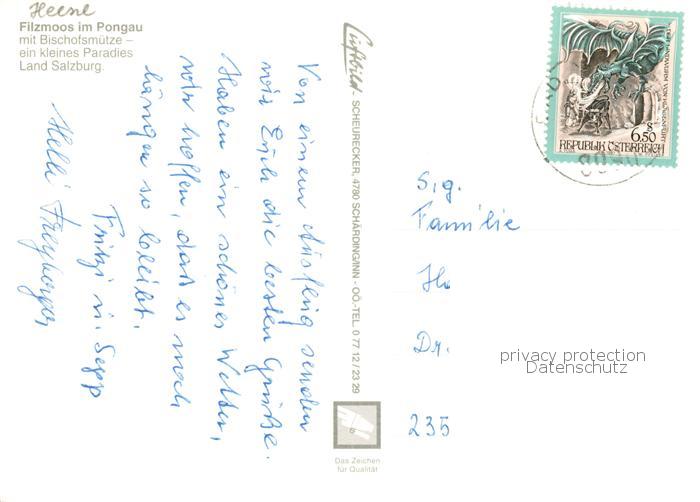 Heese
Filzmoos im Pongau
mit Bischofsmütze –
ein kleines Paradies
Land Salzburg.
Von einem Ausflug senden
wir Euch die besten Grüße.
Haben ein schönes Wetter,
wir hoffen, daß es noch
länger so bleibt.
Fritzi u. Sepp
Helli Freyberger
Luftbild - SCHEURECKER, 4780 SCHÄRDING/INN - OÖ.-TEL. 0 77 12 / 23 29
Das Zeichen
für Qualität
DER LINDWURM VON KLAGENFURT
S
6.50
REPUBLIK ÖSTERREICH
S.g.
Familie
Dr.
235
privacy protection
Datenschutz